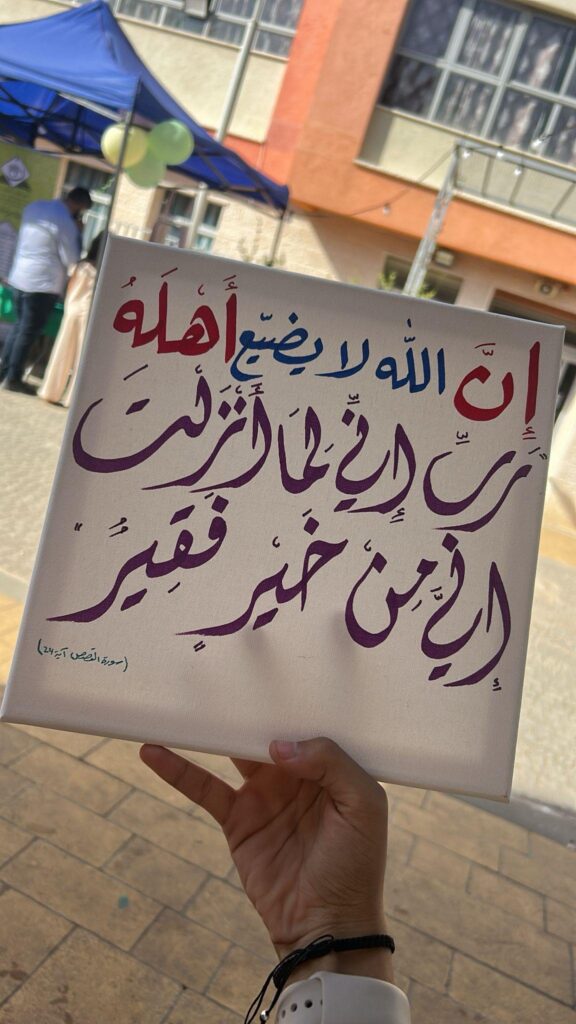 إِنَّ اللّٰه لا يضيّع أَهْلَهُ
"رَبِّ إِنِّي لِمَا أَنْزَلْتَ
إِليَّ مِنْ خَيْرٍ فَقِيرٌ"
(سورة القصص آية 24)